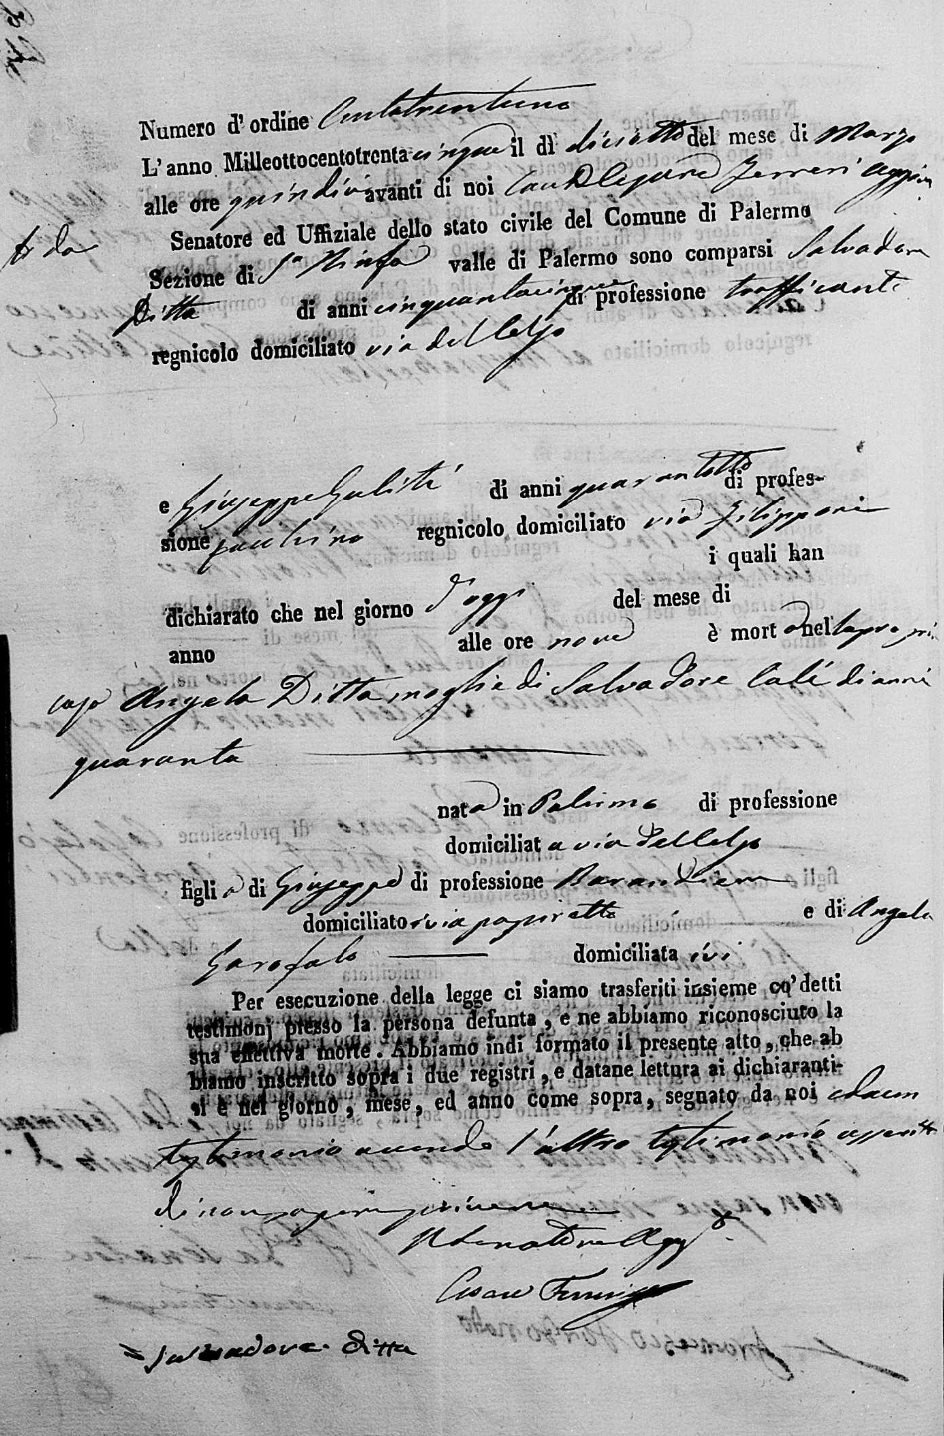 Numero d' ordine Centotrentuno
L'anno Milleottocentotrentacinque il dì diciotto del mese di Marzo
alle ore quindici avanti di noi Cav. D. Cesare Ferreri Aggiun
to da
Senatore ed Uffiziale dello stato civile del Comune di Palermo
Sezione di Sa Ninfa valle di Palermo sono comparsi Salvadore
Ditta di anni cinquantacinque di professione trafficante
regnicolo domiciliato via dell'
e Giuseppe di anni quarantotto di profes-
sione facchino regnicolo domiciliato via Filipponi
i quali han
dichiarato che nel giorno d'oggi del mese di
anno alle ore nove è morto nella propria
casa Angela Ditta moglie di Salvadore Calì di anni
quaranta
nata in Palermo di professione
domiciliata via dell'
figlia di Giuseppe di professione
domiciliato via e di Angela
Garofalo domiciliata ivi
Per esecuzione della legge ci siamo trasferiti insieme co' detti
testimonj presso la persona defunta, e ne abbiamo riconosciuto la
sua effettiva morte. Abbiamo indi formato il presente atto, che ab
biamo inscritto sopra i due registri, e datane lettura ai dichiaranti-
si è nel giorno, mese, ed anno come sopra, segnato da noi e da un
testimonio avendo l'altro testimonio asserito
di non sapere scrivere
Il Senatore Agg.o
Cesare Ferreri
= Salvadore Ditta